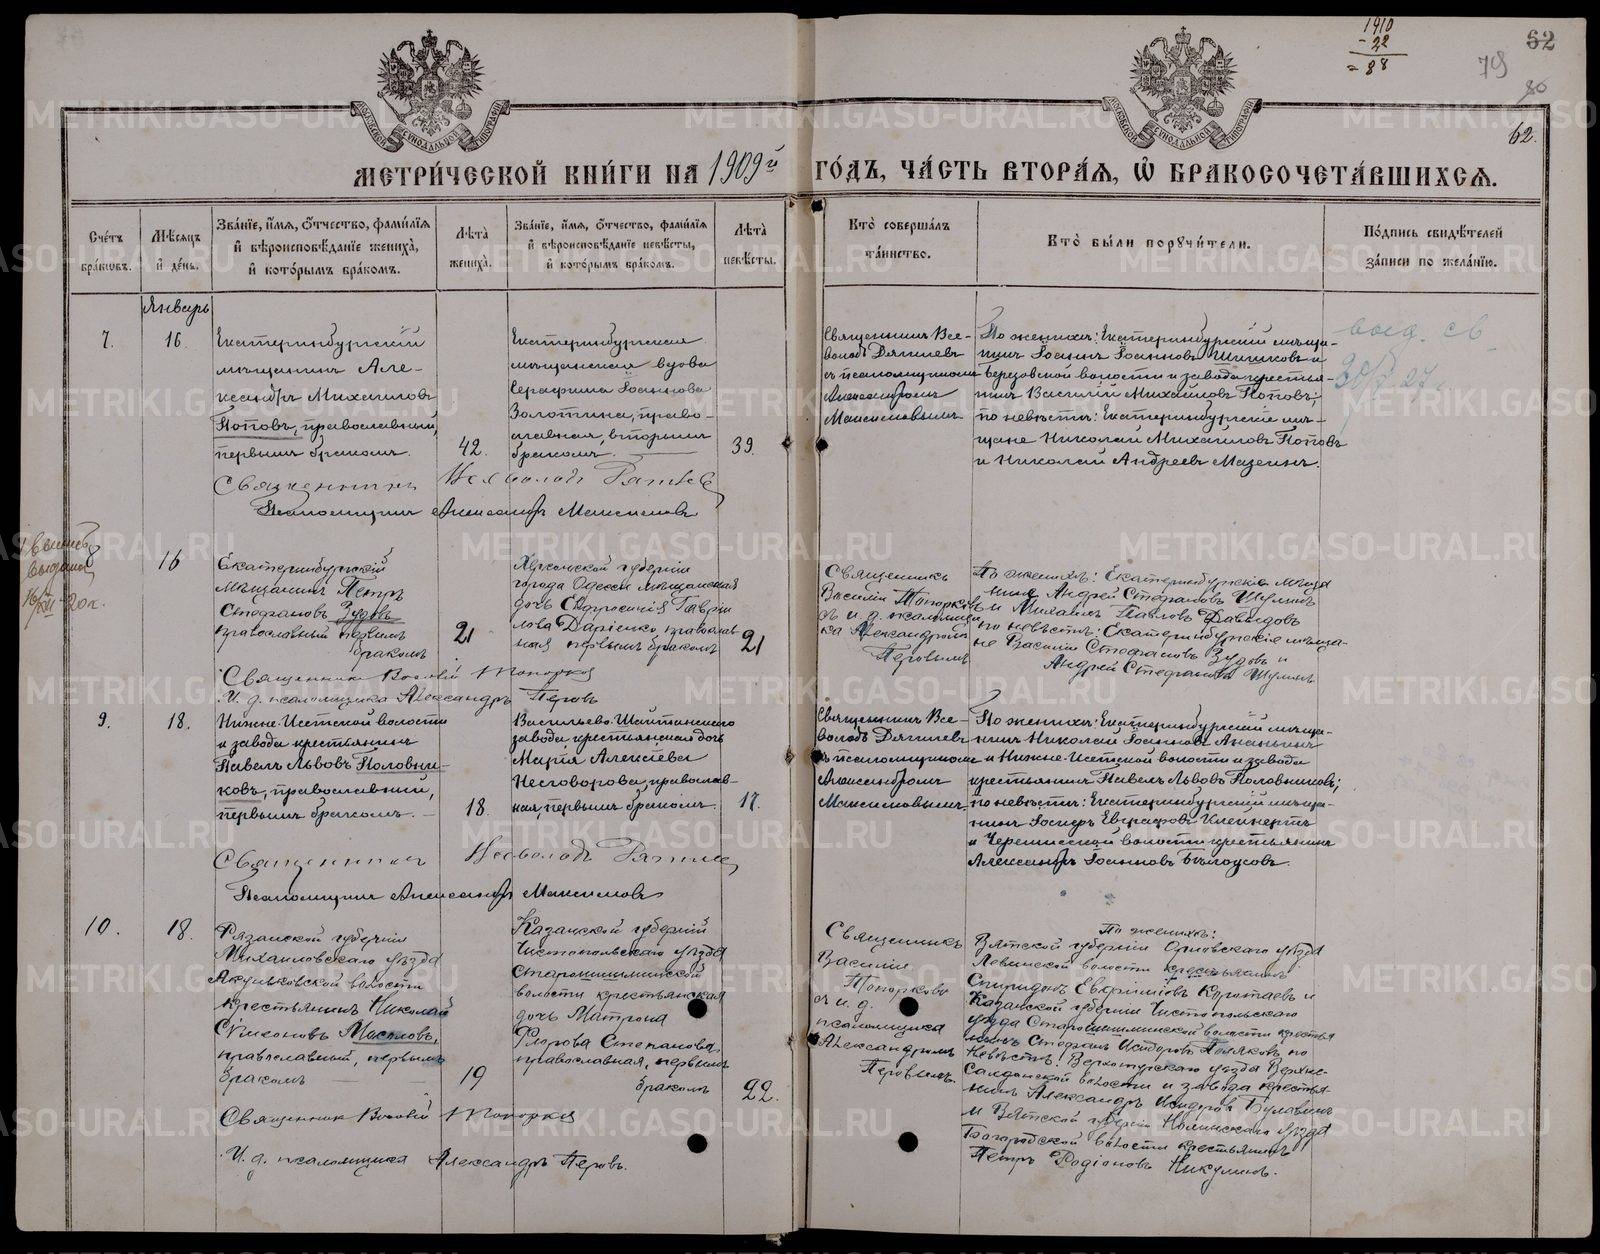 1910
- 22
= 88
62
79
80
62.
МЕТРИ́ЧЕСКОЙ КНИ́ГИ НА 1909й ГО́ДЪ, ЧА́СТЬ ВТОРА́Я, Ѡ҆ БРАКОСОЧЕТА́ВШИХСЯ.
Сче́тъ бра́ковъ.
Мѣ́сяцъ и҆ де́нь.
Зва́нїе, и҆́мя, ѻ҆́тчество, фами́лїя
и҆ вѣроисповѣ́данїе жениха̀,
и҆ кото́рымъ бра́комъ.
Лѣ́та жениха̀.
Зва́нїе, и҆́мя, ѻ҆́тчество, фами́лїя
и҆ вѣроисповѣ́данїе невѣ́сты,
и҆ кото́рымъ бра́комъ.
Лѣ́та невѣ́сты.
Кто̀ соверша́лъ та́инство.
Кто̀ бы́ли порꙋчи́тели.
По́дпись свидѣ́телей за́писи по жела́нїю.
Январь
7.
16.
Екатеринбургскій
мѣщанинъ Але-
ксандръ Михаиловъ
Поповъ, православный,
первымъ бракомъ.
42.
Екатеринбургская
мѣщанская вдова
Серафима Іоаннова
Золотина, право-
славная, вторымъ
бракомъ.
39.
Священникъ Все-
володъ
съ псаломщикомъ
Александромъ
Максимовымъ
По женихѣ: Екатеринбургскій мѣща-
нинъ Іоаннъ Іоанновъ Шишковъ и
Березовской волости и завода крестья-
нинъ Василій Михаиловъ Поповъ;
по невѣстѣ: Екатеринбургскіе мѣ-
щане Николай Михаиловъ Поповъ
и Николай Андреевъ Мазеинъ.
выд. св
Священникъ Всеволодъ
Псаломщикъ Александръ Максимовъ
выдана
8
16
Екатеринбургскій
Мѣщанинъ Петръ
Стефановъ Зудовъ
православный первымъ
бракомъ
21
Херсонской губерніи
города Одессы мѣщанская
дочь Ефросинія Гаврии
лова Даріенко православ
ная первымъ бракомъ
21
Священникъ
Василій Топорковъ
съ и. д. псаломщи
ка Александромъ
Перовымъ
По женихѣ: Екатеринбургскіе мѣща
нине Андрей Стефановъ Шулинъ
и Михаилъ Павловъ Давыдовъ
по невѣстѣ: Екатеринбургскіе мѣща-
не Василій Стефановъ Зудовъ и
Андрей Стефановъ Шулинъ
Священникъ Василій Топорковъ
И. д. псаломщика Александръ Перовъ
9.
18.
Нижне-Исетской волости
и завода крестьянинъ
Павелъ Львовъ Половни-
ковъ, православный,
первымъ бракомъ.
18.
Васильево-Шайтанского
завода крестьянская дочь
Марія Алексѣева
Несговорова, православ-
ная, первымъ бракомъ.
17.
Священникъ Все-
володъ
съ псаломщикомъ
Александромъ
Максимовымъ.
По женихѣ: Екатеринбургскій мѣща-
нинъ Николай Іоанновъ Ананьинъ
и Нижне-Исетской волости и завода
крестьянинъ Павелъ Львовъ Половниковъ;
по невѣстѣ: Екатеринбургскій мѣща-
нинъ Іосифъ Евграфовъ Клейнертъ
и Черемисской волости крестьянинъ
Александръ Іоанновъ Бѣлоусовъ.
Священникъ Всеволодъ
Псаломщикъ Александръ Максимовъ
10.
18.
Рязанской губерніи
Михаиловскаго уѣзда
волости
крестьянинъ Николай
Симоновъ Масловъ,
православный, первымъ
бракомъ
19
Казанской губерніи
Чистопольскаго уѣзда
Старошишминской
волости крестьянская
дочь Матрона
Флорова Степанова,
православная, первымъ
бракомъ
22.
Священникъ
Василій
Топорковъ
съ и. д.
псаломщика
Александромъ
Перовымъ.
По женихѣ:
Вятской губерніи Орловскаго уѣзда
Левинской волости крестьянинъ
Спиридонъ Евфиміевъ Коротаевъ и
Казанской губерніи Чистопольскаго
уѣзда Старошишминской волости крестья
нинъ Стефанъ Исидоровъ Поляковъ по
невѣстѣ: Верхотурскаго уѣзда Верхне-
Салдинской волости и завода крестья-
нинъ Александръ Исидоровъ Булавинъ
и Вятской губерніи Нолинскаго уѣзда
Богородской волости крестьянинъ
Петръ Родіоновъ Никулинъ.
Священникъ Василій Топорковъ
И. д. псаломщика Александръ Перовъ.
METRIKI.GASO-URAL.RU